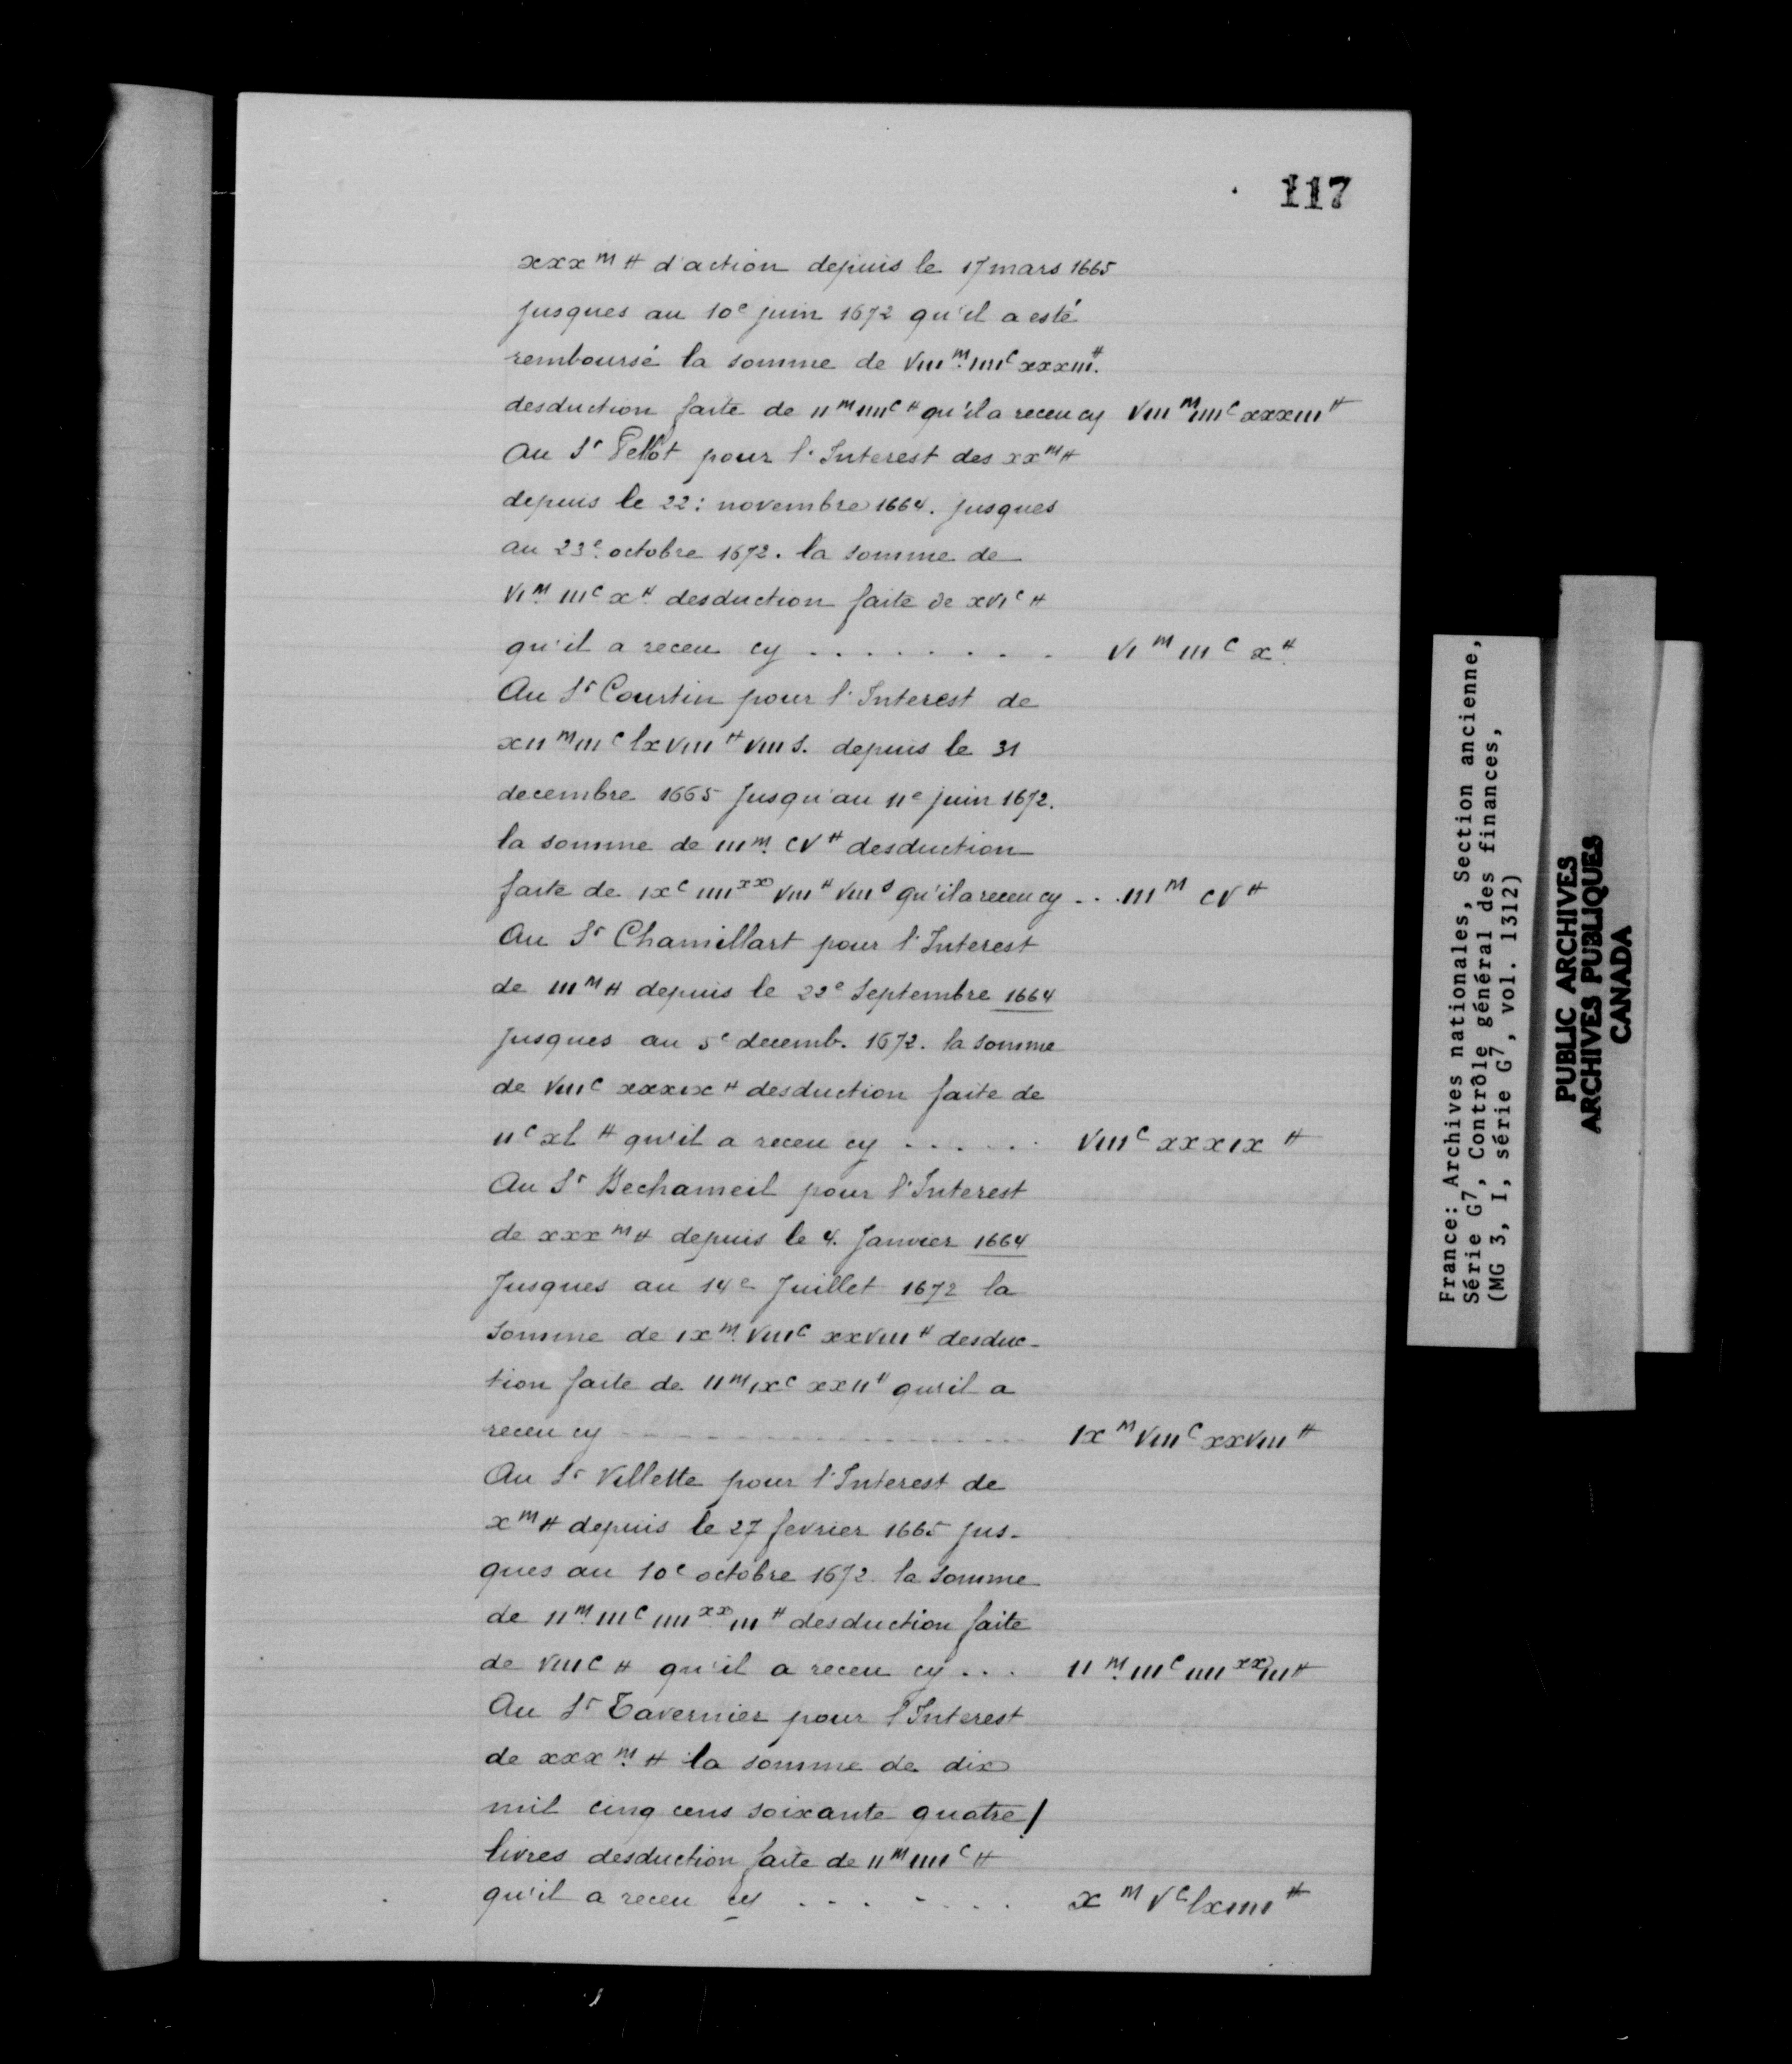 117
xxx m ₶ d'action depuis le 17 mars 1665
Jusques au 10e juin 1672 qu'il a esté
remboursé la somme de VIII m. IIII c xxxIII ₶.
desduction faite de II m IIII c ₶ qu'il a receu cy VIII m IIII c xxxIII ₶
Au Sr Pellot pour l'Interest des xx m ₶
depuis le 22: novembre 1664. Jusques
au 23e. octobre 1672. la somme de
VI m. III c x ₶. desduction faite de xVI c ₶
qu'il a receu cy . . . . . . . . VI m III c x ₶.
Au Sr Courtin pour l'Interest de
xII m III c lxVIII ₶ VIII s. depuis le 31
decembre 1665 Jusqu'au 11e juin 1672.
la somme de III m. CV ₶ desduction
faite de Ix c IIII xx VIII ₶ VIII s qu'il a receu cy . . . III m CV ₶
Au Sr Chamillart pour l'Interest
de III m ₶ depuis le 22e Septembre 1664
Jusques au 5e decemb. 1672. la somme
de VIII c xxxIx ₶ desduction faite de
II c xl ₶ qu'il a receu cy . . . . . . VIII c xxxIx ₶
Au Sr Bechameil pour l'Interest
de xxx m ₶ depuis le 4. Janvier 1664
Jusques au 14e Juillet 1672 la
somme de Ix m. VIII c xxVIII ₶ desduc-
tion faite de II m Ix c xxII ₶ qu'il a
receu cy - - - - - - - - - - Ix m VIII c xxVIII ₶
Au Sr Villette pour l'Interest de
x m ₶ depuis le 27 fevrier 1665 jus-
ques au 10e octobre 1672. la somme
de II m. III c IIII xx. III ₶ desduction faite
de VIII c ₶ qu'il a receu cy . . . II m. III c IIII xx III ₶
Au Sr Tavernier pour l'Interest
de xxx m. ₶ la somme de dix
mil cinq cens soixante quatre/
livres desduction faite de II m IIII c ₶
qu'il a receu cy . . . . . . . x m V c lxIIII ₶
France: Archives nationales, Section ancienne,
Série G7, Contrôle général des finances,
(MG 3, I, série G7, vol. 1312)
PUBLIC ARCHIVES
ARCHIVES PUBLIQUES
CANADA